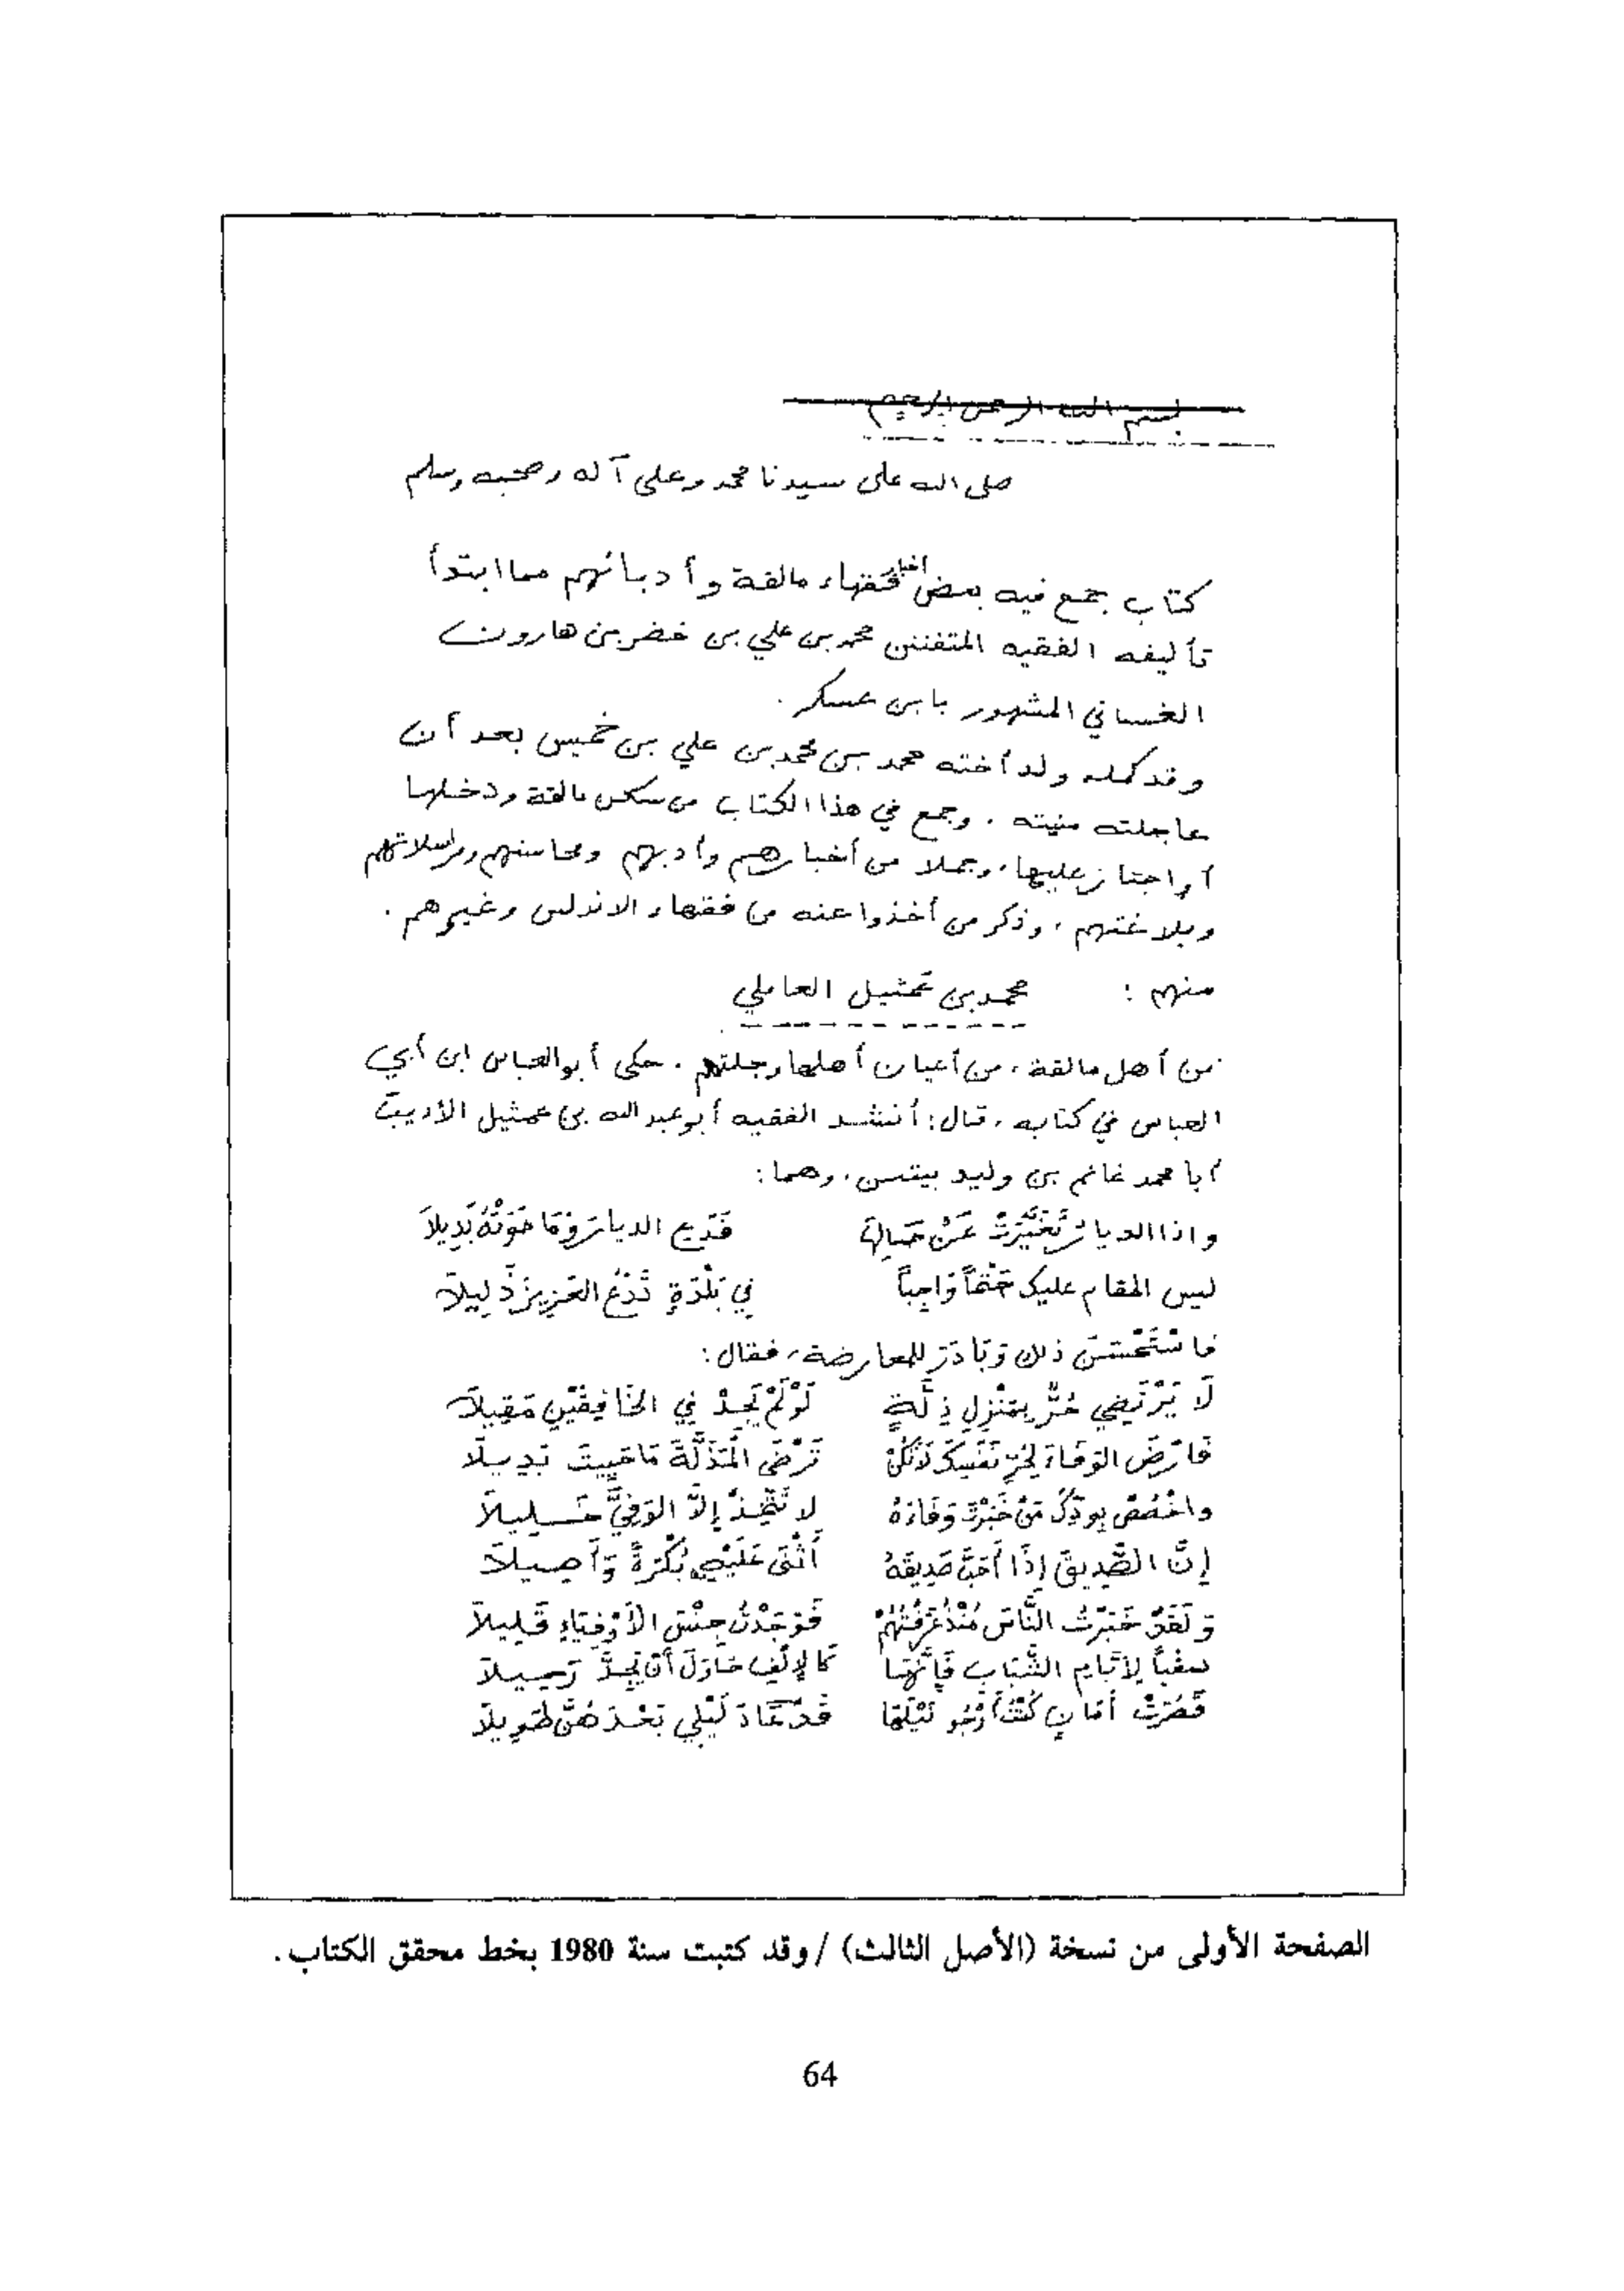 بسم الله الرحمن الرحيم
صلى الله على سيدنا محمد وعلى آله وصحبه وسلم
كتاب جمع فيه بعض أخبار فقهاء مالقة وأدبائهم مما ابتدأ
تأليفه الفقيه المتفنن محمد بن علي بن خضر بن هارون
الغساني المشهور بابن عسكر .
وقد كمله ولد أخته محمد بن محمد بن علي بن خميس بعد أن
عاجلته منيته . وجمع في هذا الكتاب من سكن مالقة ودخلها
أو اجتاز عليها ، وجملا من أخبارهم وأدبهم ومحاسنهم ومراسلاتهم
وبلاغتهم ، وذكر من أخذوا عنه من فقهاء الاندلس وغيرهم .
منهم : محمد بن عمثيل العاملي
من أهل مالقة ، من أعيان أهلها وجلتهم . حكى أبو العباس ابن أبي
العباس في كتابه ، قال : أنشد الفقيه أبو عبد الله بن عمثيل الأديبَ
أبا محمد غانم بن وليد بيتين ، وهما :
واذا الديارُ تَغَيَّرَتْ عَنْ حَالِهَا فَدَعِ الديارَ وَمَا حَوَتْهُ بَدِيلاَ
ليس المقام عليك حَتْماً وَاجِباً فِي بَلْدَةٍ تَدَعُ العَزِيزَ ذَلِيلاَ
فاسْتَحْسَنَ ذلك وَبَادَرَ للمعارضة ، فقال :
لَا يَرْتَضِي حُرٌّ بِمَنْزِلِ ذِلَّةٍ لَوْ لَمْ يَجِدْ فِي الخَافِقَيْنِ مَقِيلاَ
فَارْضَ الوَفَاءَ لِحُرِّ نَفْسِكَ لاَ تَكُنْ تَرْضَى الْمَذَلَّةَ مَا حَيِيتَ بَدِيلاَ
واخْصُصْ بِوُدِّكَ مَنْ خَبَرْتَ وَفَاءَهُ لا تَتَّخِذْ إِلاَّ الوَفِيَّ خَلِيلاَ
إِنَّ الصَّدِيقَ إِذَا أَحَبَّ صَدِيقَهُ أَثْنَى عَلَيْهِ بُكْرَةً وَأَصِيلاَ
وَلَقَدْ خَبَرْتُ النَّاسَ مُنْذُ عَرَفْتُهُمْ فَوَجَدْتُ جِنْسَ الأَوْفِيَاءِ قَلِيلاَ
سقياً لأَيَّامِ الشَّبَابِ فَإِنَّهَا كَالإِلْفِ حَاوَلَ أَنْ يَجِدَّ رَحِيلاَ
قَصُرَتْ أَمَانٍ كُنْتُ أَرْجُو نَيْلَهَا قَدْ عَادَ لَيْلِي بَعْدَهُنَّ طَوِيلاَ
الصفحة الأولى من نسخة (الأصل الثالث) / وقد كتبت سنة 1980 بخط محقق الكتاب .
64